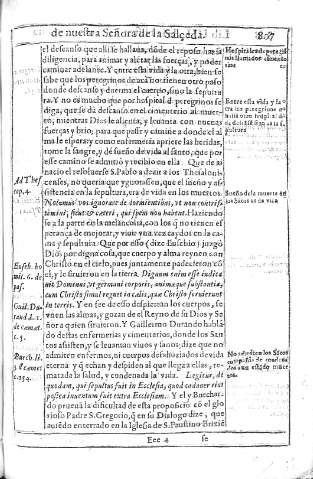 de nuestra Señora de la Salceda.
807
el descanso que alli se hallaua, dōde el reposo hazia
diligencia, para animar y alētar las fuerças, y poder
caminar adelante. Y entre esta vida y la otra, bien se
sabe que los peregrinos de acà no tienen otro poso
donde descanse y duerma el cuerpo, sino la sepultu
ra. Y no es mucho que por hospital d peregrinos se
diga, que se dà descanso en el cimenterio al muer-
to, mientras Dios le alienta, y leuanta con nueuas
fuerças y brio; para que passe y camine a donde el al
ma le espera y como enfermeria apriete las heridas,
tome la sangre, y dè sueño de vida al santo, que por
esse camino se admitiò y recibio en ella. Que de a-
nacio el resoluerse S. Pablo a dezir a los Thesaloni-
censes, no queria que ygnorassen, que el sueño y as-
sistencia en la sepultura, era de vida en los muertos.
Nolumus vos ignorare de dormientibus, vt non contris-
temini; sicut & cæteri, qui spem non habent. Haziendo
se a la parte en la melancolia, con los q̄ no tienen es
perança de mejorar, y viuir vna vez caydos en la ca-
ma y sepultura. Que por esso (dize Eusebio) juzgò
Dios por digna cosa, que cuerpo y alma reynen con
Christo en el cielo, pues juntamente padecierō con
el, y le siruieron en la tierra. Dignum enim esse indica
uit Dominus vt germani corporis, anima que substantia,
cum Christo simul regnet in cælis, que Christo seruierunt
in terris. Y en fee de esso despiertan los cuerpos, se
vnen las almas, y gozan de el Reyno de su Dios y Se
ñora quien siruieron. Y Guillermo Durando hablã
do destas enfermerias y cimenterios, donde los San
tos assisten, y se llaman viuos y sanos; dize que no
admiten enfermos, ni cuerpos deshauziados de vida
eterna y q̄ echan y despiden al que llega a ellas, re-
matada la salud, y condenada la vida. Legitur, de
quodam, qui sepultus fuit in Ecclesia, quod cadauer eius
postea inuentum fuit extra Ecclesiam. Y el y Burchar-
do prueuā la dificultad de esta proposiciō cō el glo
rioso Padre S. Gregorio, q̄ en su Dialogo dize, que
auiēdo enterrado en la Iglesia de S. Faustino Brixiē
Eee 4
se
Ad Thes
cap. 4
Euseb. ho
mil. 6. de
pas.
Guil. Du-
rand. l. 1.
de cemæt.
c. 5.
Sueño de la muerte de
los Santos es en vida
No admiten los Santos